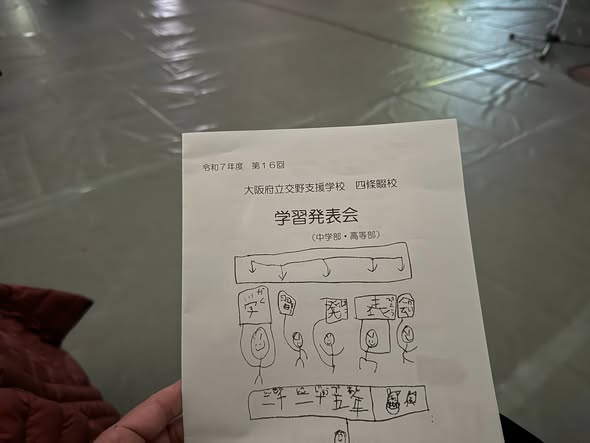 令和7年度 第16回
大阪府立交野支援学校 四條畷校
学習発表会
（中学部・高等部）
学 習 発 表 会